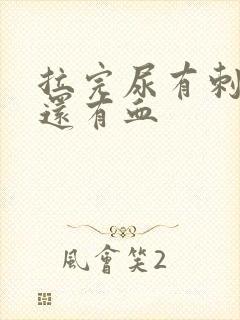 拉完尿有刺
還有血
風會笑2